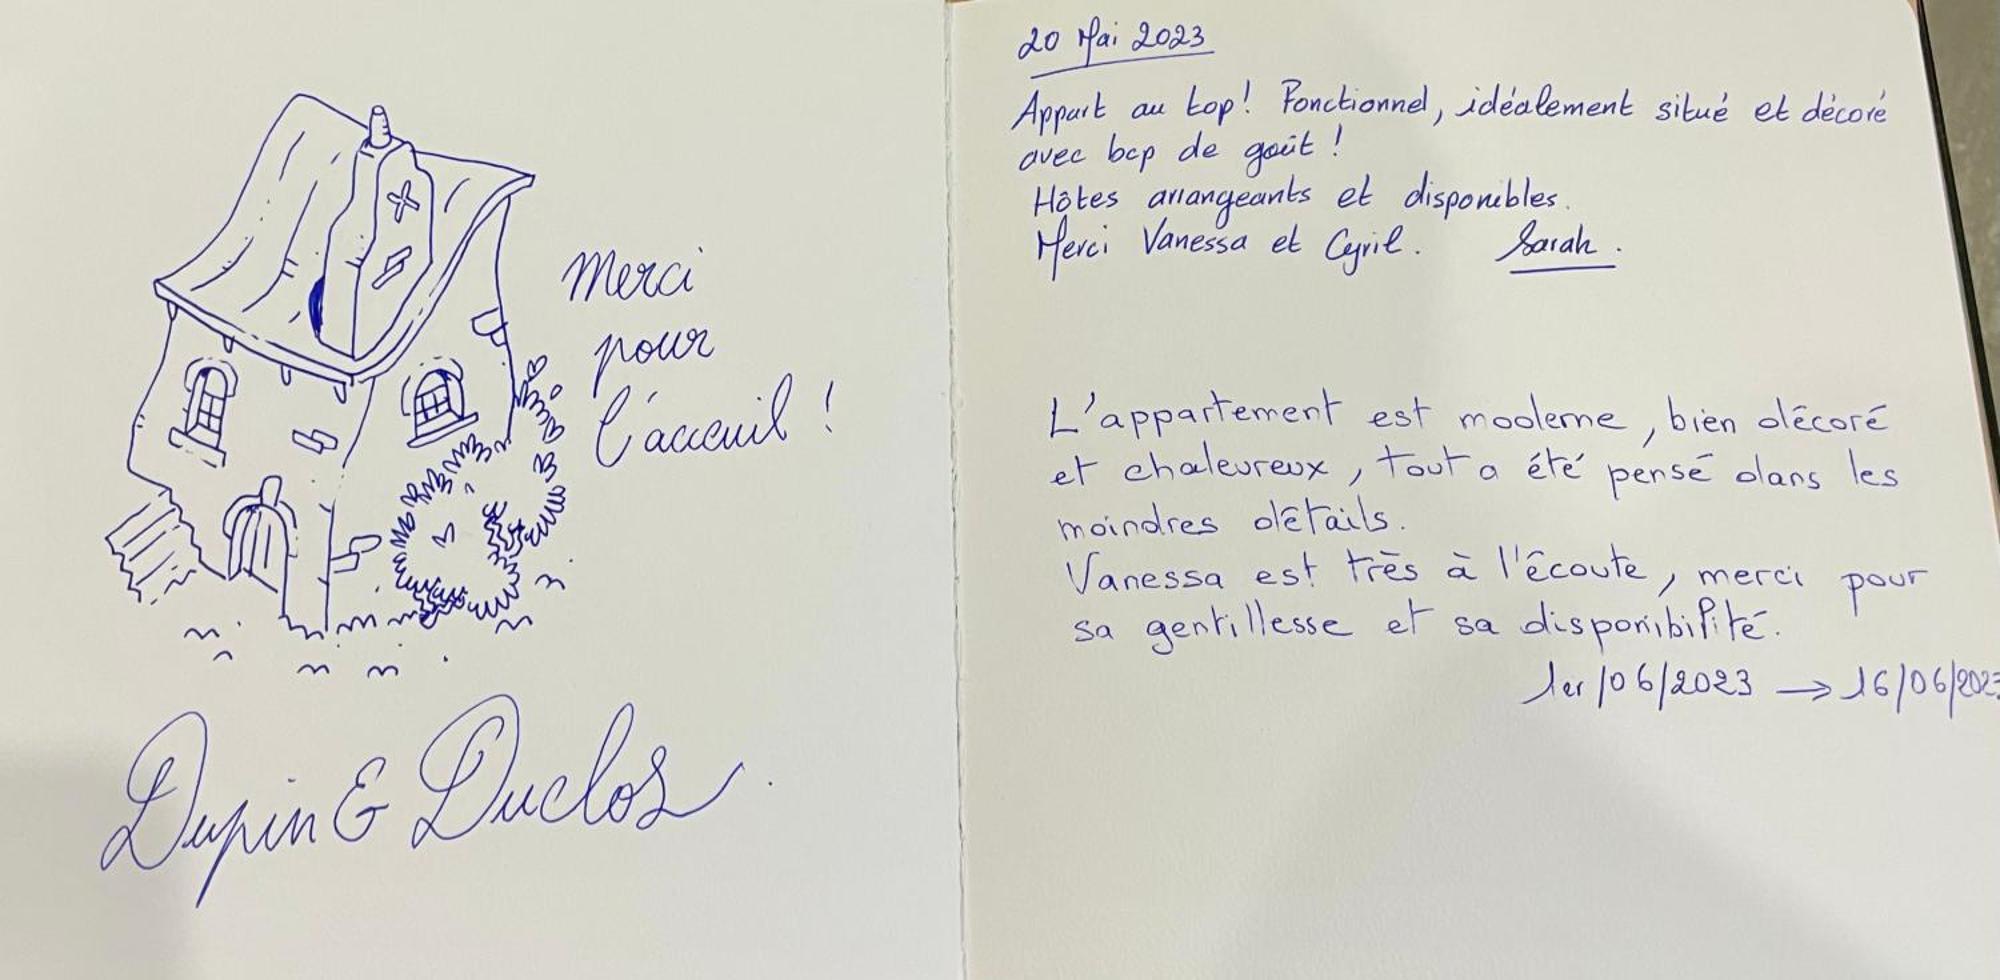 Merci
pour
l'acceuil !
Dupin & Duclos.
20 Mai 2023
Appart au top! Fonctionnel, idéalement situé et décoré
avec bcp de goût !
Hôtes arrangeants et disponibles.
Merci Vanessa et Cyril. Sarah.
L'appartement est moderne, bien décoré
et chaleureux, tout a été pensé dans les
moindres détails.
Vanessa est très à l'écoute, merci pour
sa gentillesse et sa disponibilité.
1er/06/2023 → 16/06/2023